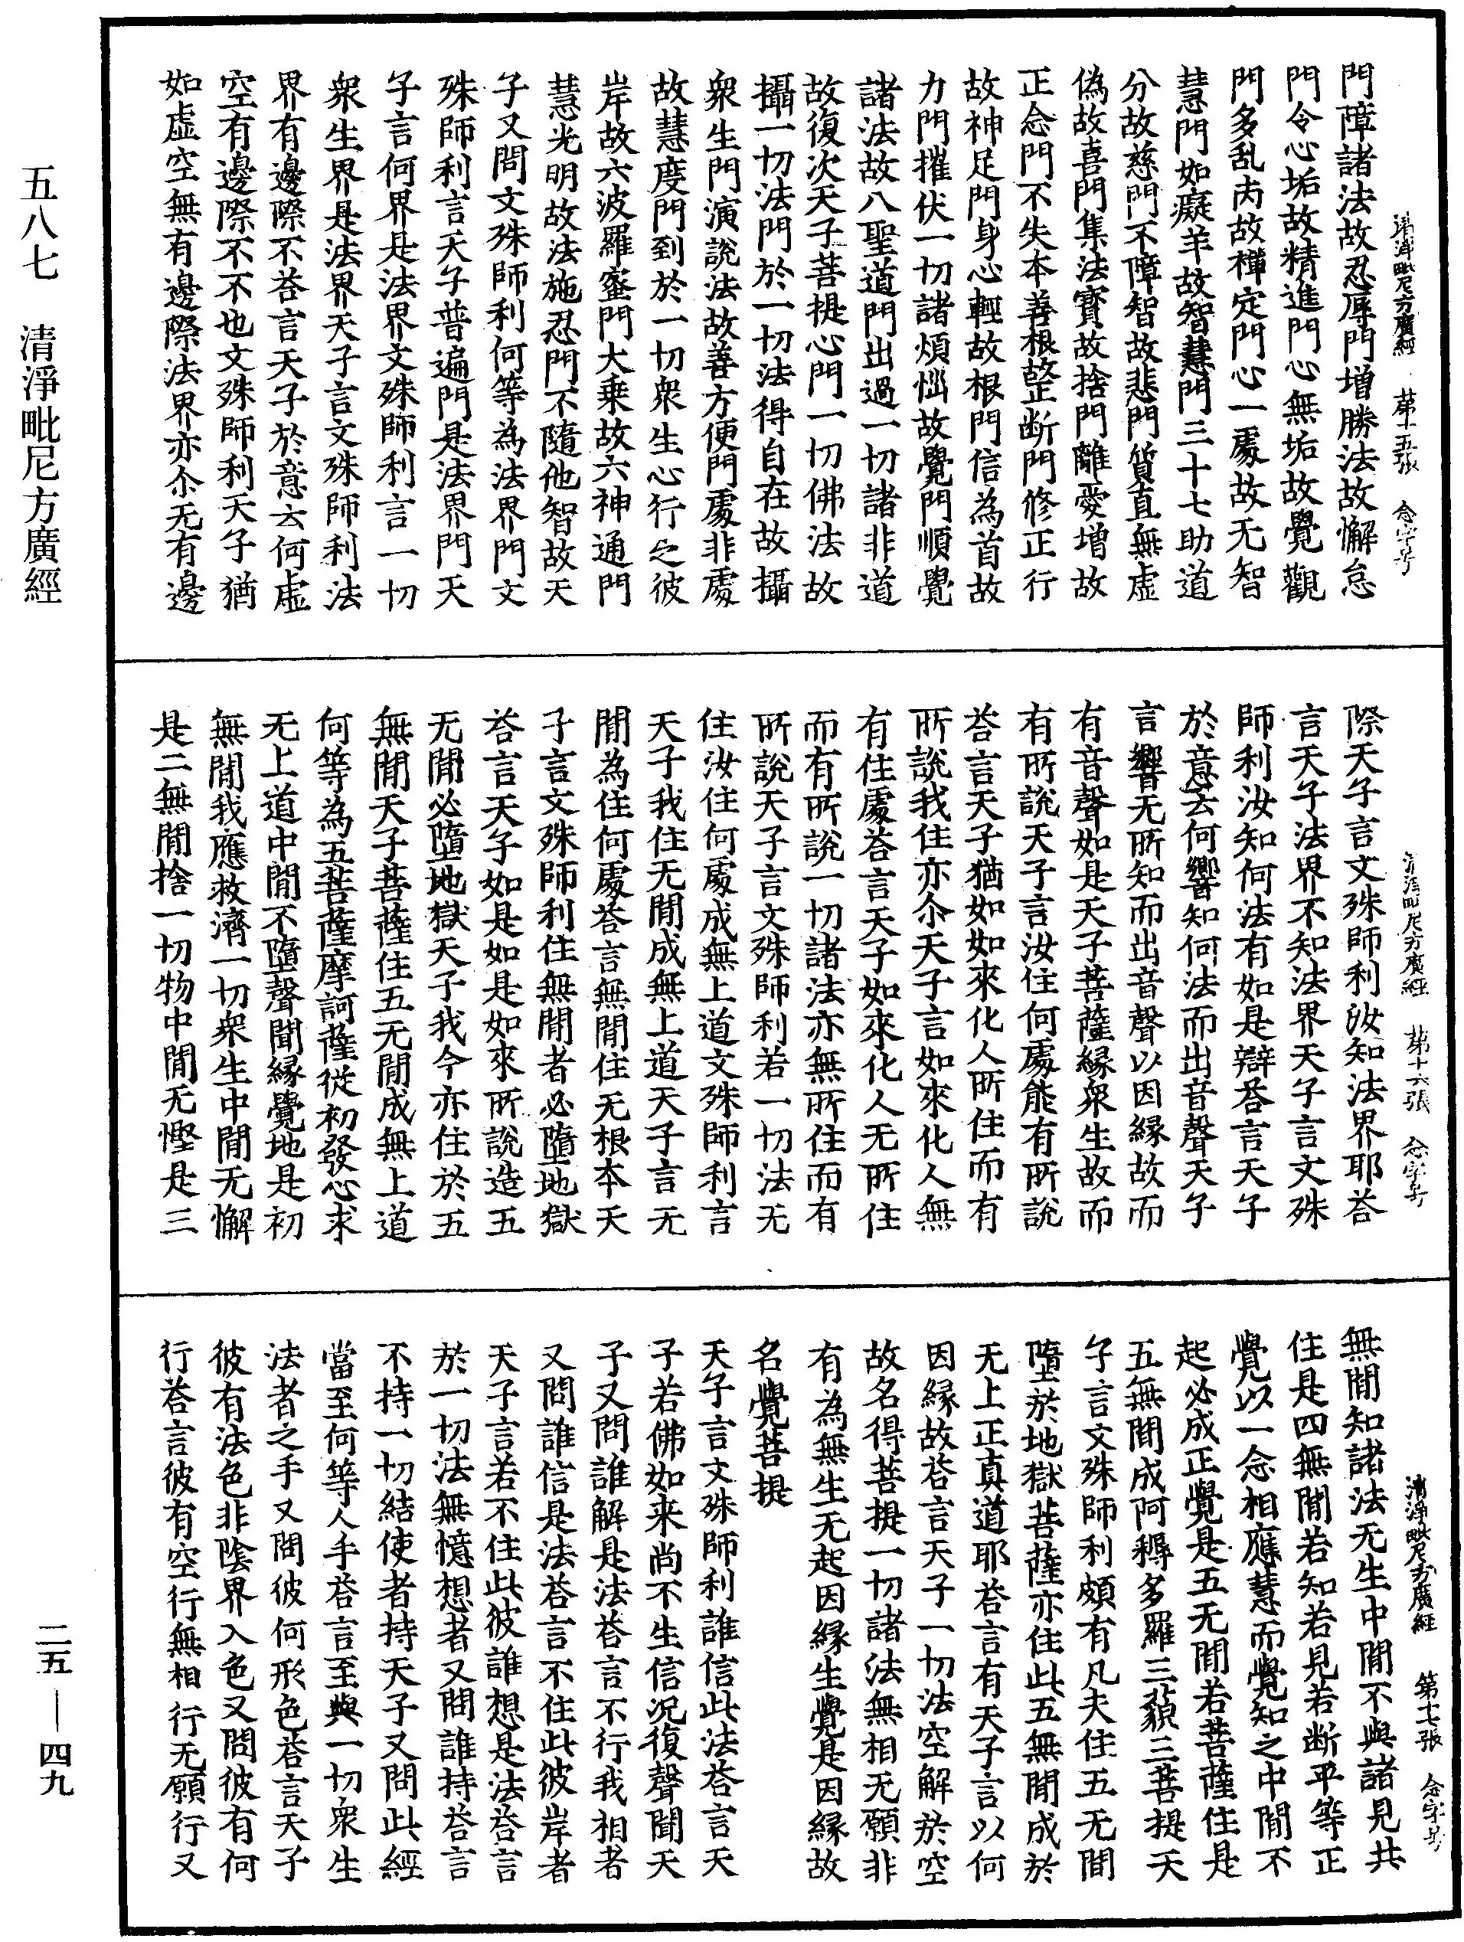 五八七　清淨毗尼方廣經
清淨毗尼方廣經　苐十五張　念字号
門障諸法故忍辱門增勝法故懈怠
門令心垢故精進門心無垢故覺觀
門多乱内故禪定門心一處故无智
慧門如癡羊故智慧門三十七助道
分故慈門不障智故悲門質直無虛
偽故喜門集法寶故捨門離愛增故
正念門不失本善根故正断門修正行
故神足門身心輕故根門信為首故
力門摧伏一切諸煩惱故覺門順覺
諸法故八聖道門出過一切諸非道
故復次天子菩提心門一切佛法故
攝一切法門於一切法得自在故攝
衆生門演說法故善方便門處非處
故慧度門到於一切衆生心行之彼
岸故六波羅蜜門大乗故六神通門
慧光明故法施忍門不隨他智故天
子又問文殊師利何等為法界門文
殊師利言天子普遍門是法界門天
子言何界是法界文殊師利言一切
衆生界是法界天子言文殊師利法
界有邊際不荅言天子於意云何虛
空有邊際不不也文殊師利天子猶
如虛空無有邊際法界亦尒无有邊
清淨毗尼方廣經　苐十六張　念字号
際天子言文殊師利汝知法界耶荅
言天子法界不知法界天子言文殊
師利汝知何法有如是辯荅言天子
於意云何響知何法而出音聲天子
言響无所知而出音聲以因緣故而
有音聲如是天子菩薩緣衆生故而
有所說天子言汝住何處能有所說
荅言天子猶如如來化人所住而有
所說我住亦尒天子言如來化人無
有住處荅言天子如來化人无所住
而有所說一切諸法亦無所住而有
所說天子言文殊師利若一切法无
住汝住何處成無上道文殊師利言
天子我住无閒成無上道天子言无
閒為住何處荅言無閒住无根本天
子言文殊師利住無閒者必墮地獄
荅言天子如是如是如來所說造五
无閒必墮地獄天子我今亦住於五
無閒天子菩薩住五无閒成無上道
何等為五菩薩摩訶薩從初發心求
无上道中閒不墮聲聞緣覺地是初
無閒我應救濟一切衆生中閒无懈
是二無閒捨一切物中閒无慳是三
清淨毗尼方廣經　第十七張　念字号
無閒知諸法无生中閒不與諸見共
住是四無閒若知若見若断平等正
覺以一念相應慧而覺知之中閒不
起必成正覺是五无閒若菩薩住是
五無閒成阿耨多羅三藐三菩提天
子言文殊師利頗有凡夫住五无閒
墮於地獄菩薩亦住此五無閒成於
无上正真道耶荅言有天子言以何
因緣故荅言天子一切法空解於空
故名得菩提一切諸法無相无願非
有為無生无起因緣生覺是因緣故
名覺菩提
天子言文殊師利誰信此法荅言天
子若佛如来尚不生信況復聲聞天
子又問誰解是法荅言不行我相者
又問誰信是法荅言不住此彼岸者
天子言若不住此彼誰想是法荅言
於一切法無憶想者又問誰持荅言
不持一切結使者持天子又問此經
當至何等人手荅言至與一切衆生
法者之手又問彼何形色荅言天子
彼有法色非陰界入色又問彼有何
行荅言彼有空行無相行无願行又
二五—四九